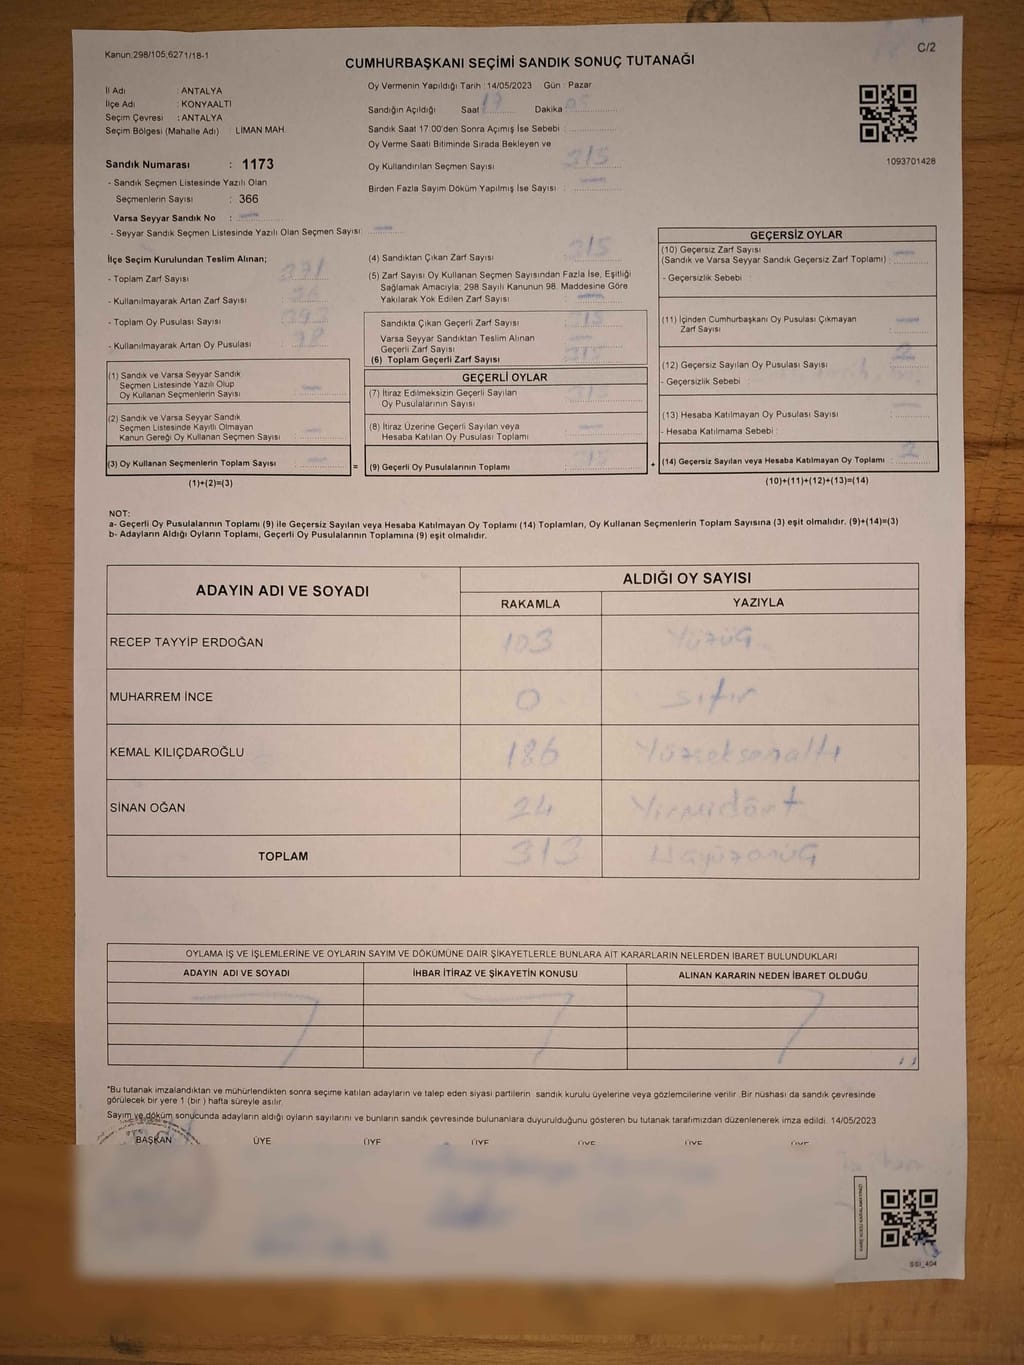 Kanun:298/105;6271/18-1
C/2
CUMHURBAŞKANI SEÇİMİ SANDIK SONUÇ TUTANAĞI
İl Adı : ANTALYA
İlçe Adı : KONYAALTI
Seçim Çevresi : ANTALYA
Seçim Bölgesi (Mahalle Adı) : LİMAN MAH.
Sandık Numarası : 1173
- Sandık Seçmen Listesinde Yazılı Olan
Seçmenlerin Sayısı : 366
Varsa Seyyar Sandık No :
- Seyyar Sandık Seçmen Listesinde Yazılı Olan Seçmen Sayısı:
Oy Vermenin Yapıldığı Tarih : 14/05/2023 Gün : Pazar
Sandığın Açıldığı Saat 17 Dakika 05
Sandık Saat 17:00'den Sonra Açımış İse Sebebi :
Oy Verme Saati Bitiminde Sırada Bekleyen ve
Oy Kullandırılan Seçmen Sayısı : 315
Birden Fazla Sayım Döküm Yapılmış İse Sayısı :
1093701428
İlçe Seçim Kurulundan Teslim Alınan;
- Toplam Zarf Sayısı
- Kullanılmayarak Artan Zarf Sayısı
- Toplam Oy Pusulası Sayısı
- Kullanılmayarak Artan Oy Pusulası
(1) Sandık ve Varsa Seyyar Sandık
Seçmen Listesinde Yazılı Olup
Oy Kullanan Seçmenlerin Sayısı
(2) Sandık ve Varsa Seyyar Sandık
Seçmen Listesinde Kayıtlı Olmayan
Kanun Gereği Oy Kullanan Seçmen Sayısı
(3) Oy Kullanan Seçmenlerin Toplam Sayısı
=
(1)+(2)=(3)
(4) Sandıktan Çıkan Zarf Sayısı : 315
(5) Zarf Sayısı Oy Kullanan Seçmen Sayısından Fazla İse, Eşitliği
Sağlamak Amacıyla; 298 Sayılı Kanunun 98. Maddesine Göre
Yakılarak Yok Edilen Zarf Sayısı :
Sandıkta Çıkan Geçerli Zarf Sayısı : 315
Varsa Seyyar Sandıktan Teslim Alınan
Geçerli Zarf Sayısı :
(6) Toplam Geçerli Zarf Sayısı : 315
GEÇERLİ OYLAR
(7) İtiraz Edilmeksizin Geçerli Sayılan
Oy Pusulalarının Sayısı : 315
(8) İtiraz Üzerine Geçerli Sayılan veya
Hesaba Katılan Oy Pusulası Toplamı :
(9) Geçerli Oy Pusulalarının Toplamı : 315
+
GEÇERSİZ OYLAR
(10) Geçersiz Zarf Sayısı
(Sandık ve Varsa Seyyar Sandık Geçersiz Zarf Toplamı) :
- Geçersizlik Sebebi :
(11) İçinden Cumhurbaşkanı Oy Pusulası Çıkmayan
Zarf Sayısı
(12) Geçersiz Sayılan Oy Pusulası Sayısı : 2
- Geçersizlik Sebebi :
(13) Hesaba Katılmayan Oy Pusulası Sayısı :
- Hesaba Katılmama Sebebi :
(14) Geçersiz Sayılan veya Hesaba Katılmayan Oy Toplamı : 2
(10)+(11)+(12)+(13)=(14)
NOT:
a- Geçerli Oy Pusulalarının Toplamı (9) ile Geçersiz Sayılan veya Hesaba Katılmayan Oy Toplamı (14) Toplamları, Oy Kullanan Seçmenlerin Toplam Sayısına (3) eşit olmalıdır. (9)+(14)=(3)
b- Adayların Aldığı Oyların Toplamı, Geçerli Oy Pusulalarının Toplamına (9) eşit olmalıdır.
ADAYIN ADI VE SOYADI ALDIĞI OY SAYISI
RAKAMLA YAZIYLA
RECEP TAYYİP ERDOĞAN 103 Yüzüç
MUHARREM İNCE 0 sıfır
KEMAL KILIÇDAROĞLU 186 Yüzseksenaltı
SİNAN OĞAN 24 Yirmidört
TOPLAM 313 Üçyüzonüç
OYLAMA İŞ VE İŞLEMLERİNE VE OYLARIN SAYIM VE DÖKÜMÜNE DAİR ŞİKAYETLERLE BUNLARA AİT KARARLARIN NELERDEN İBARET BULUNDUKLARI
ADAYIN ADI VE SOYADI İHBAR İTİRAZ VE ŞİKAYETİN KONUSU ALINAN KARARIN NEDEN İBARET OLDUĞU
*Bu tutanak imzalandıktan ve mühürlendikten sonra seçime katılan adayların ve talep eden siyasi partilerin sandık kurulu üyelerine veya gözlemcilerine verilir. Bir nüshası da sandık çevresinde
görülecek bir yere 1 (bir ) hafta süreyle asılır.
Sayım ve döküm sonucunda adayların aldığı oyların sayılarını ve bunların sandık çevresinde bulunanlara duyurulduğunu gösteren bu tutanak tarafımızdan düzenlenerek imza edildi. 14/05/2023
BAŞKAN ÜYE ÜYE ÜYE ÜYE ÜYE ÜYE
SSI_404